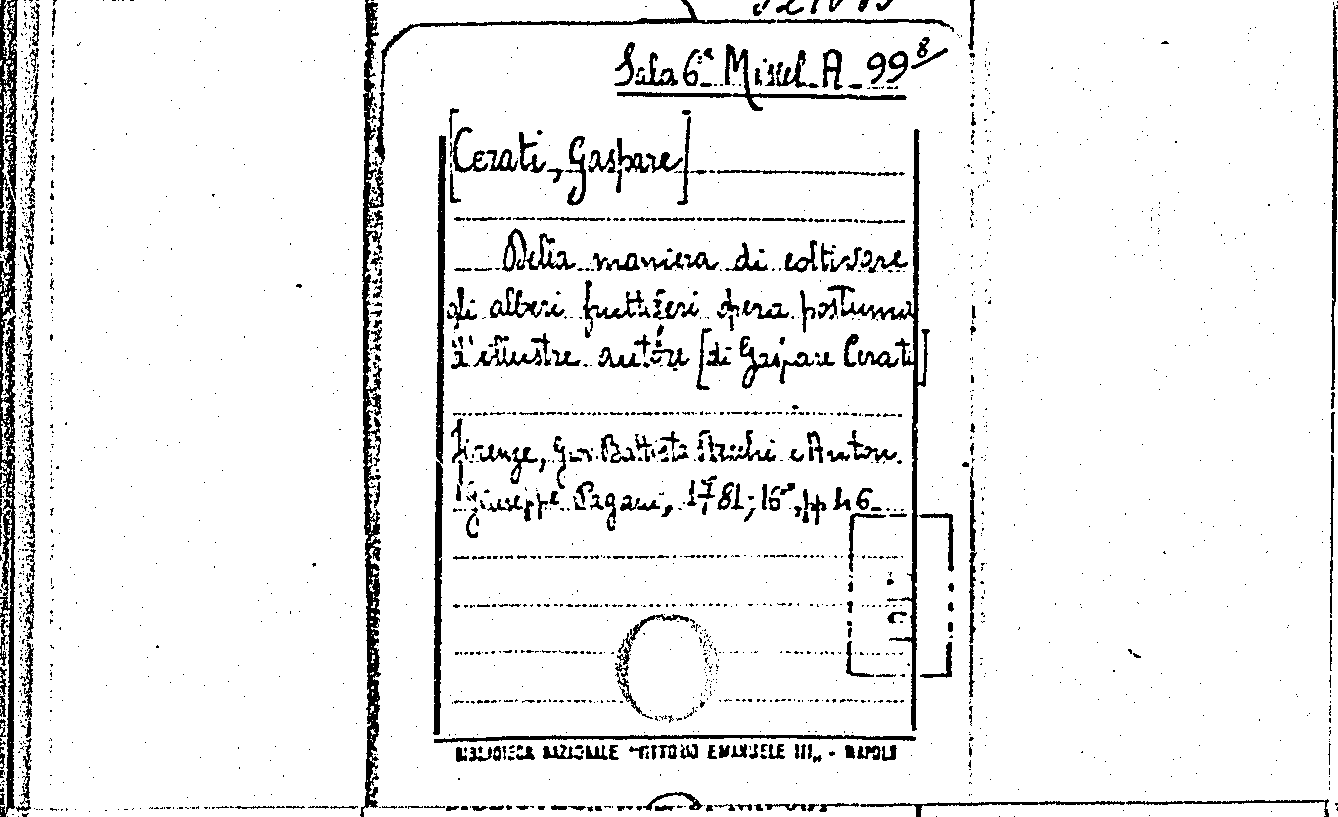 Sala 6ª Miscel. A. 99 8/
[Cerati, Gaspare]
Della maniera di coltivare
gli alberi fruttiferi opera postuma
d'illustre autore [di Gaspare Cerati]
Firenze, Giov. Battista Stecchi e Anton.
Giuseppe Pagani, 1781; 16°, pp
BIBLIOTECA NAZIONALE "VITTORIO EMANUELE III" - NAPOLI